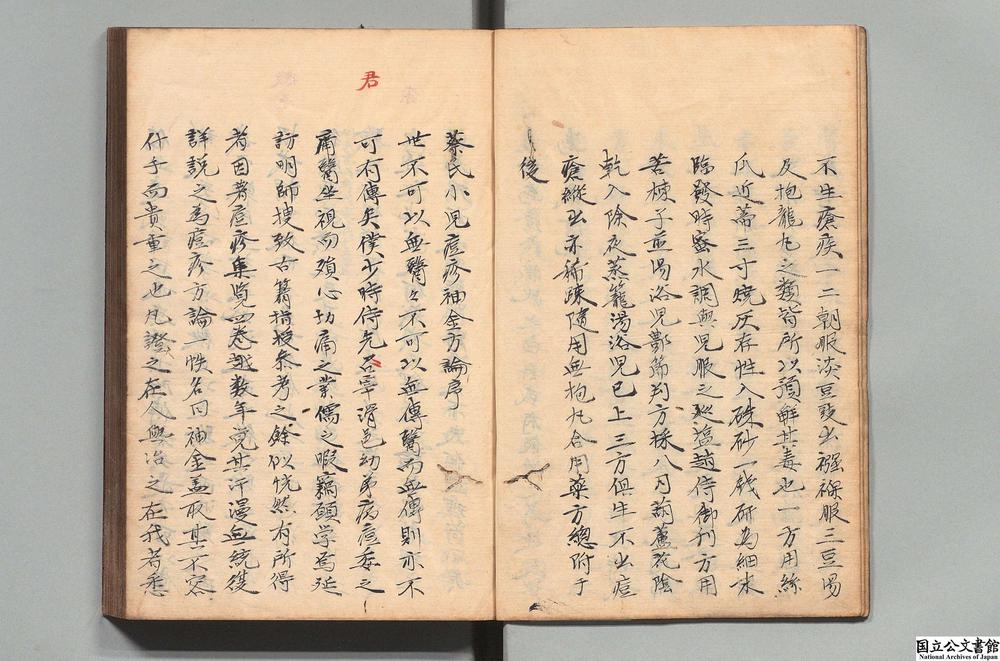 不生瘡疾一二朝服淡豆豉出襁褓服三豆湯
及抱龍丸之類皆所以預解其毒也一方用絲
瓜近蒂三寸燒灰存性入硃砂一錢研為細末
臨發時蜜水調與兒服之 塩趙侍御刊方用
苦楝子煎湯浴兒鄭節判方採八月葫蘆花陰
乾入除夜蒸籠湯浴兒已上三方俱生不出痘
瘡縱出亦稀踈隨用無抱丸合用藥方總附于
後
蔡氏小兒痘疹袖金方論序
世不可以無醫々不可以無傳醫而無傳則亦不
可有傳矣僕少時侍先君宰滑邑幼弟病痘委之
庸醫坐視而殞心切痛之業儒之暇竊願学焉延
訪明師搜致古籍指授參考之餘似恍然有所得
者因著痘疹集覧四卷越数年覚其汗漫無統復
詳説之為痘疹方論一帙名曰袖金盖取其不容
什手而貴重之也凡證之在人與治之在我者悉
君
国立公文書館
National Archives of Japan